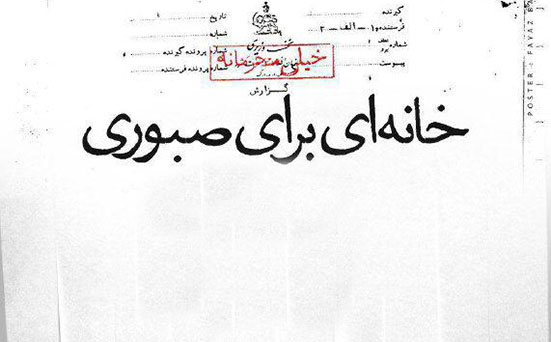 گیرنده تاریخ
فرستنده ۱۰ – الف – ۲ شماره
شماره نخست وزیری شماره پرونده گیرنده
پیوست شماره پرونده فرستنده
خیلی محرمانه
گزارش
خانه‌ای برای صبوری
POSTER : FAYAZ